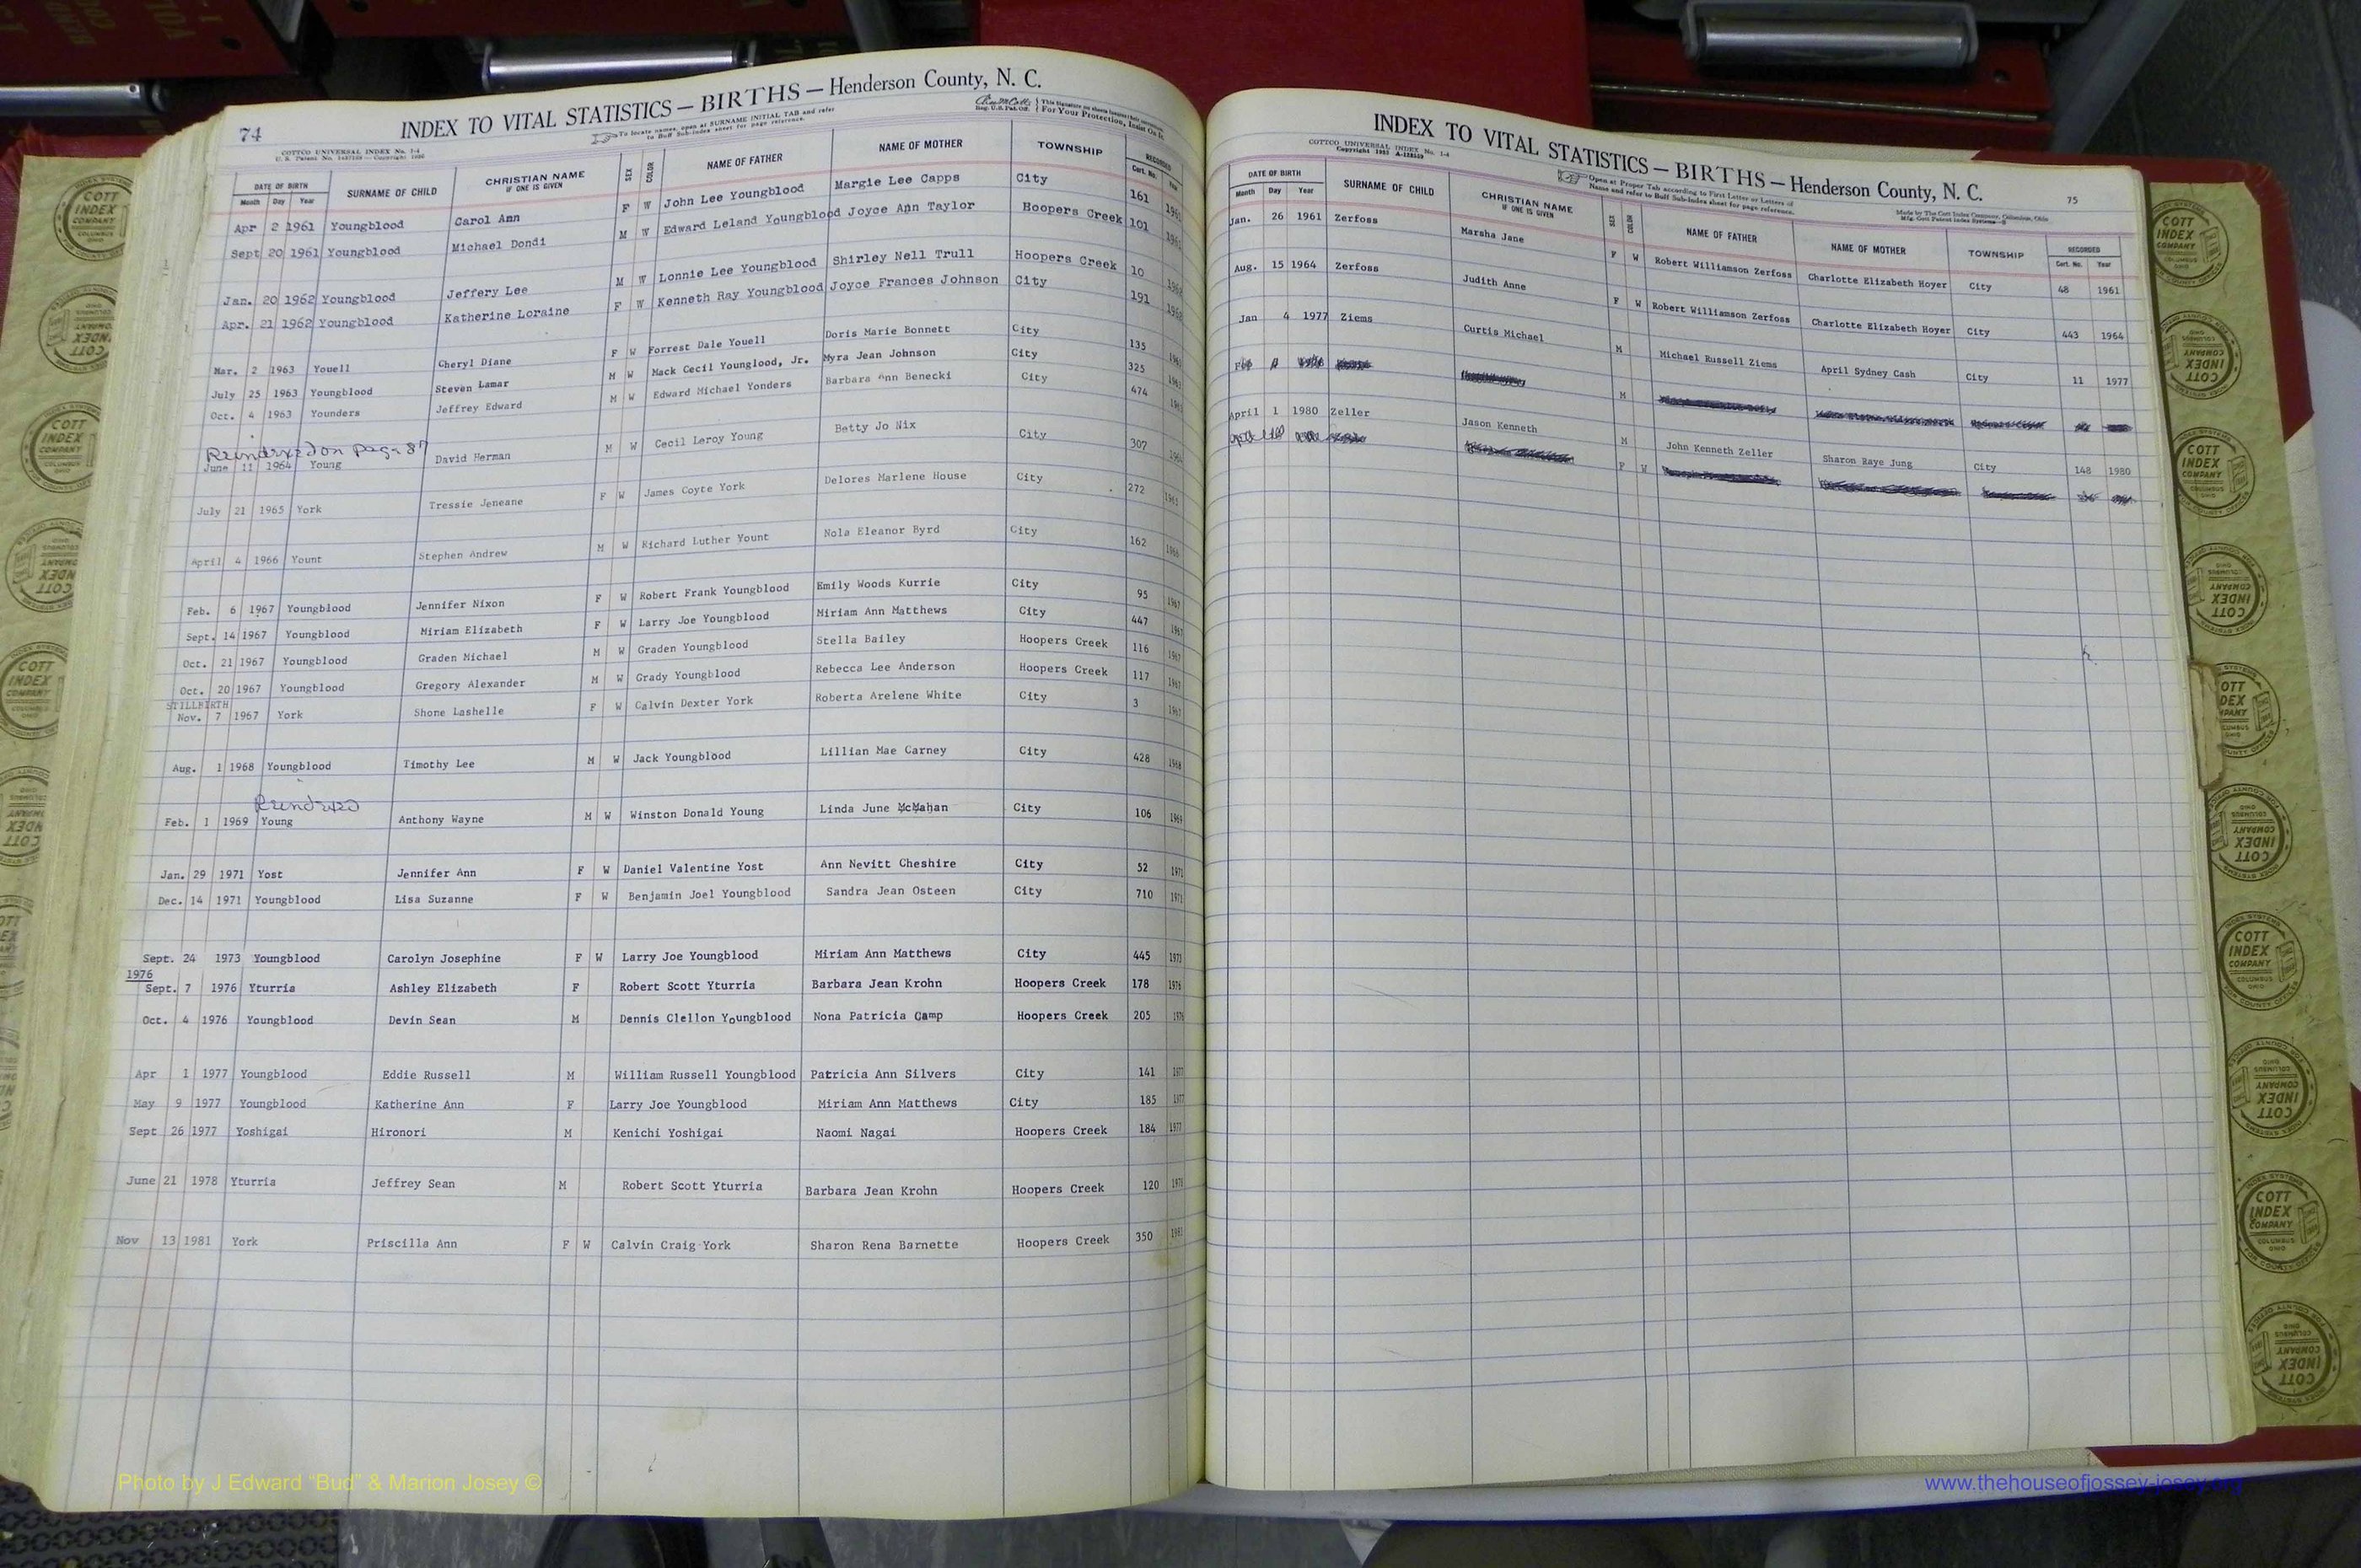 74
INDEX TO VITAL STATISTICS — BIRTHS — Henderson County, N. C.
COTTCO UNIVERSAL INDEX No. 1-4
To locate names, open at SURNAME INITIAL TAB and refer
to Buff Sub-Index sheet for page reference.
DATE OF BIRTH SURNAME OF CHILD CHRISTIAN NAME SEX COLOR NAME OF FATHER NAME OF MOTHER TOWNSHIP RECORDED
Month Day Year IF ONE IS GIVEN Cert. No.
Apr 2 1961 Youngblood Carol Ann F W John Lee Youngblood Margie Lee Capps City 161 1961
Sept 20 1961 Youngblood Michael Dondi M W Edward Leland Youngblood Joyce Ann Taylor Hoopers Creek 101 1961
Jan. 20 1962 Youngblood Jeffery Lee M W Lonnie Lee Youngblood Shirley Nell Trull Hoopers Creek 10 1962
Apr. 21 1962 Youngblood Katherine Loraine F W Kenneth Ray Youngblood Joyce Frances Johnson City 191 1962
Mar. 2 1963 Youell Cheryl Diane F W Forrest Dale Youell Doris Marie Bonnett City 135
July 25 1963 Youngblood Steven Lamar M W Mack Cecil Younglood, Jr. Myra Jean Johnson City 325
Oct. 4 1963 Younders Jeffrey Edward M W Edward Michael Yonders Barbara Ann Benecki City 474
Reindexed on page 87
June 11 1964 Young David Herman M W Cecil Leroy Young Betty Jo Nix City 307
July 21 1965 York Tressie Jeneane F W James Coyte York Delores Marlene House City 272 1965
April 4 1966 Yount Stephen Andrew M W Richard Luther Yount Nola Eleanor Byrd City 162 1966
Feb. 6 1967 Youngblood Jennifer Nixon F W Robert Frank Youngblood Emily Woods Kurrie City 95 1967
Sept. 14 1967 Youngblood Miriam Elizabeth F W Larry Joe Youngblood Miriam Ann Matthews City 447 1967
Oct. 21 1967 Youngblood Graden Michael M W Graden Youngblood Stella Bailey Hoopers Creek 116 1967
Oct. 20 1967 Youngblood Gregory Alexander M W Grady Youngblood Rebecca Lee Anderson Hoopers Creek 117 1967
STILLBIRTH
Nov. 7 1967 York Shone Lashelle F W Calvin Dexter York Roberta Arelene White City 3 1967
Aug. 1 1968 Youngblood Timothy Lee M W Jack Youngblood Lillian Mae Carney City 428 1968
Reindexed
Feb. 1 1969 Young Anthony Wayne M W Winston Donald Young Linda June McMahan City 106 1969
Jan. 29 1971 Yost Jennifer Ann F W Daniel Valentine Yost Ann Nevitt Cheshire City 52 1971
Dec. 14 1971 Youngblood Lisa Suzanne F W Benjamin Joel Youngblood Sandra Jean Osteen City 710 1971
Sept. 24 1973 Youngblood Carolyn Josephine F W Larry Joe Youngblood Miriam Ann Matthews City 445 1973
1976
Sept. 7 1976 Yturria Ashley Elizabeth F Robert Scott Yturria Barbara Jean Krohn Hoopers Creek 178 1976
Oct. 4 1976 Youngblood Devin Sean M Dennis Clellon Youngblood Nona Patricia Camp Hoopers Creek 205 1976
Apr 1 1977 Youngblood Eddie Russell M William Russell Youngblood Patricia Ann Silvers City 141 1977
May 9 1977 Youngblood Katherine Ann F Larry Joe Youngblood Miriam Ann Matthews City 185 1977
Sept 26 1977 Yoshigai Hironori M Kenichi Yoshigai Naomi Nagai Hoopers Creek 184 1977
June 21 1978 Yturria Jeffrey Sean M Robert Scott Yturria Barbara Jean Krohn Hoopers Creek 120 1978
Nov 13 1981 York Priscilla Ann F W Calvin Craig York Sharon Rena Barnette Hoopers Creek 350 1981
INDEX TO VITAL STATISTICS — BIRTHS — Henderson County, N. C.
75
COTTCO UNIVERSAL INDEX No. 1-4
Open at Proper Tab according to First Letter or Letters of
Name and refer to Buff Sub-Index sheet for page reference.
Made by The Cott Index Company, Columbus, Ohio
DATE OF BIRTH SURNAME OF CHILD CHRISTIAN NAME SEX COLOR NAME OF FATHER NAME OF MOTHER TOWNSHIP RECORDED
Month Day Year IF ONE IS GIVEN Cert. No. Year
Jan. 26 1961 Zerfoss Marsha Jane F W Robert Williamson Zerfoss Charlotte Elizabeth Hoyer City 48 1961
Aug. 15 1964 Zerfoss Judith Anne F W Robert Williamson Zerfoss Charlotte Elizabeth Hoyer City 443 1964
Jan 4 1977 Ziems Curtis Michael M Michael Russell Ziems April Sydney Cash City 11 1977
M
April 1 1980 Zeller Jason Kenneth M John Kenneth Zeller Sharon Raye Jung City 148 1980
F W
COTT INDEX COMPANY COLUMBUS OHIO
Photo by J Edward "Bud" & Marion Josey ©
www.thehouseofjossey-josey.org